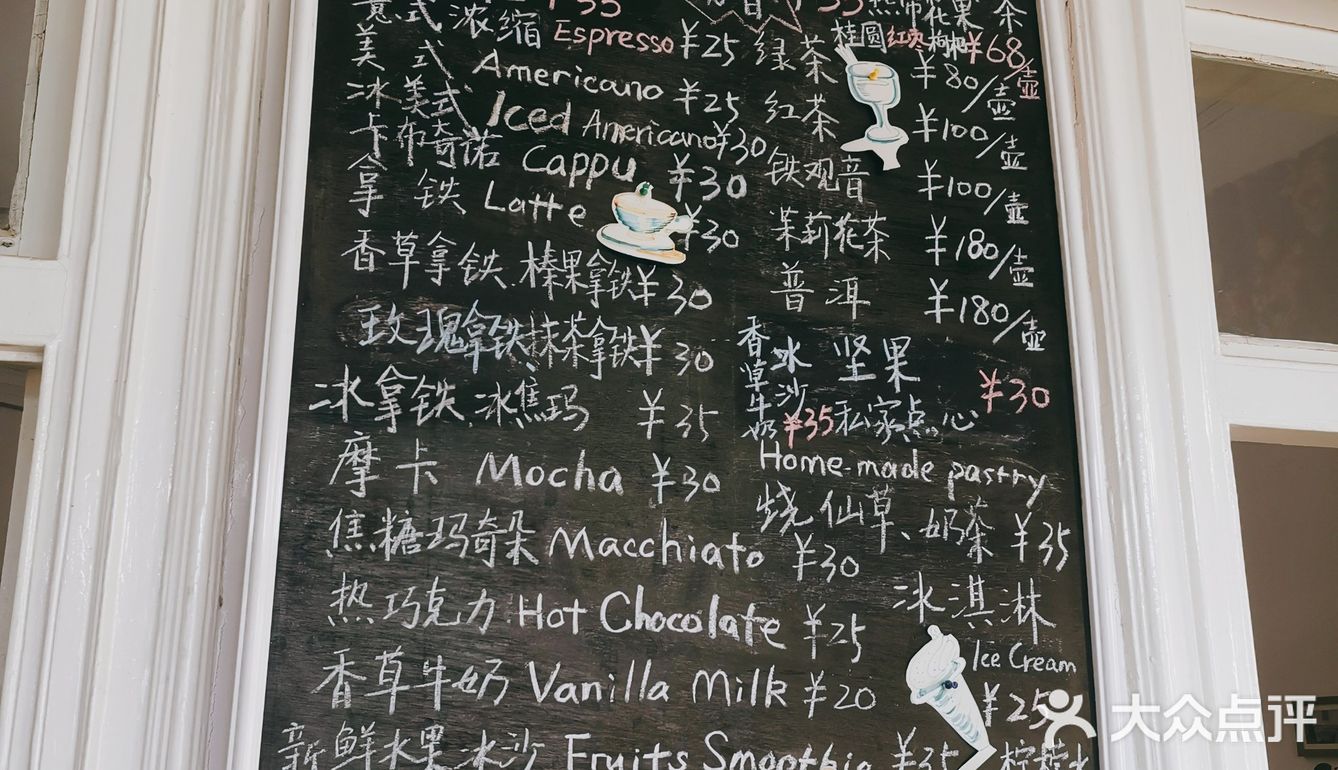 ¥35
意式浓缩 Espresso ¥25
美式 Americano ¥25
冰美式 Iced Americano ¥30
卡布奇诺 Cappu ¥30
拿铁 Latte ¥30
香草拿铁 榛果拿铁 ¥30
玫瑰拿铁 抹茶拿铁 ¥30
冰拿铁 冰焦玛 ¥35
摩卡 Mocha ¥30
焦糖玛奇朵 Macchiato ¥30
热巧克力 Hot Chocolate ¥25
香草牛奶 Vanilla Milk ¥20
新鲜水果冰沙 Fruits Smoothie ¥35
¥35
果茶
桂圆红枣枸杞 ¥68/壶
绿茶 ¥80/壶
红茶 ¥100/壶
铁观音 ¥100/壶
茉莉花茶 ¥180/壶
普洱 ¥180/壶
香草牛奶
冰沙 ¥35
坚果 ¥30
私家点心
Home-made pastry
烧仙草、奶茶 ¥35
冰淇淋
Ice Cream
¥25
柠檬水
大众点评